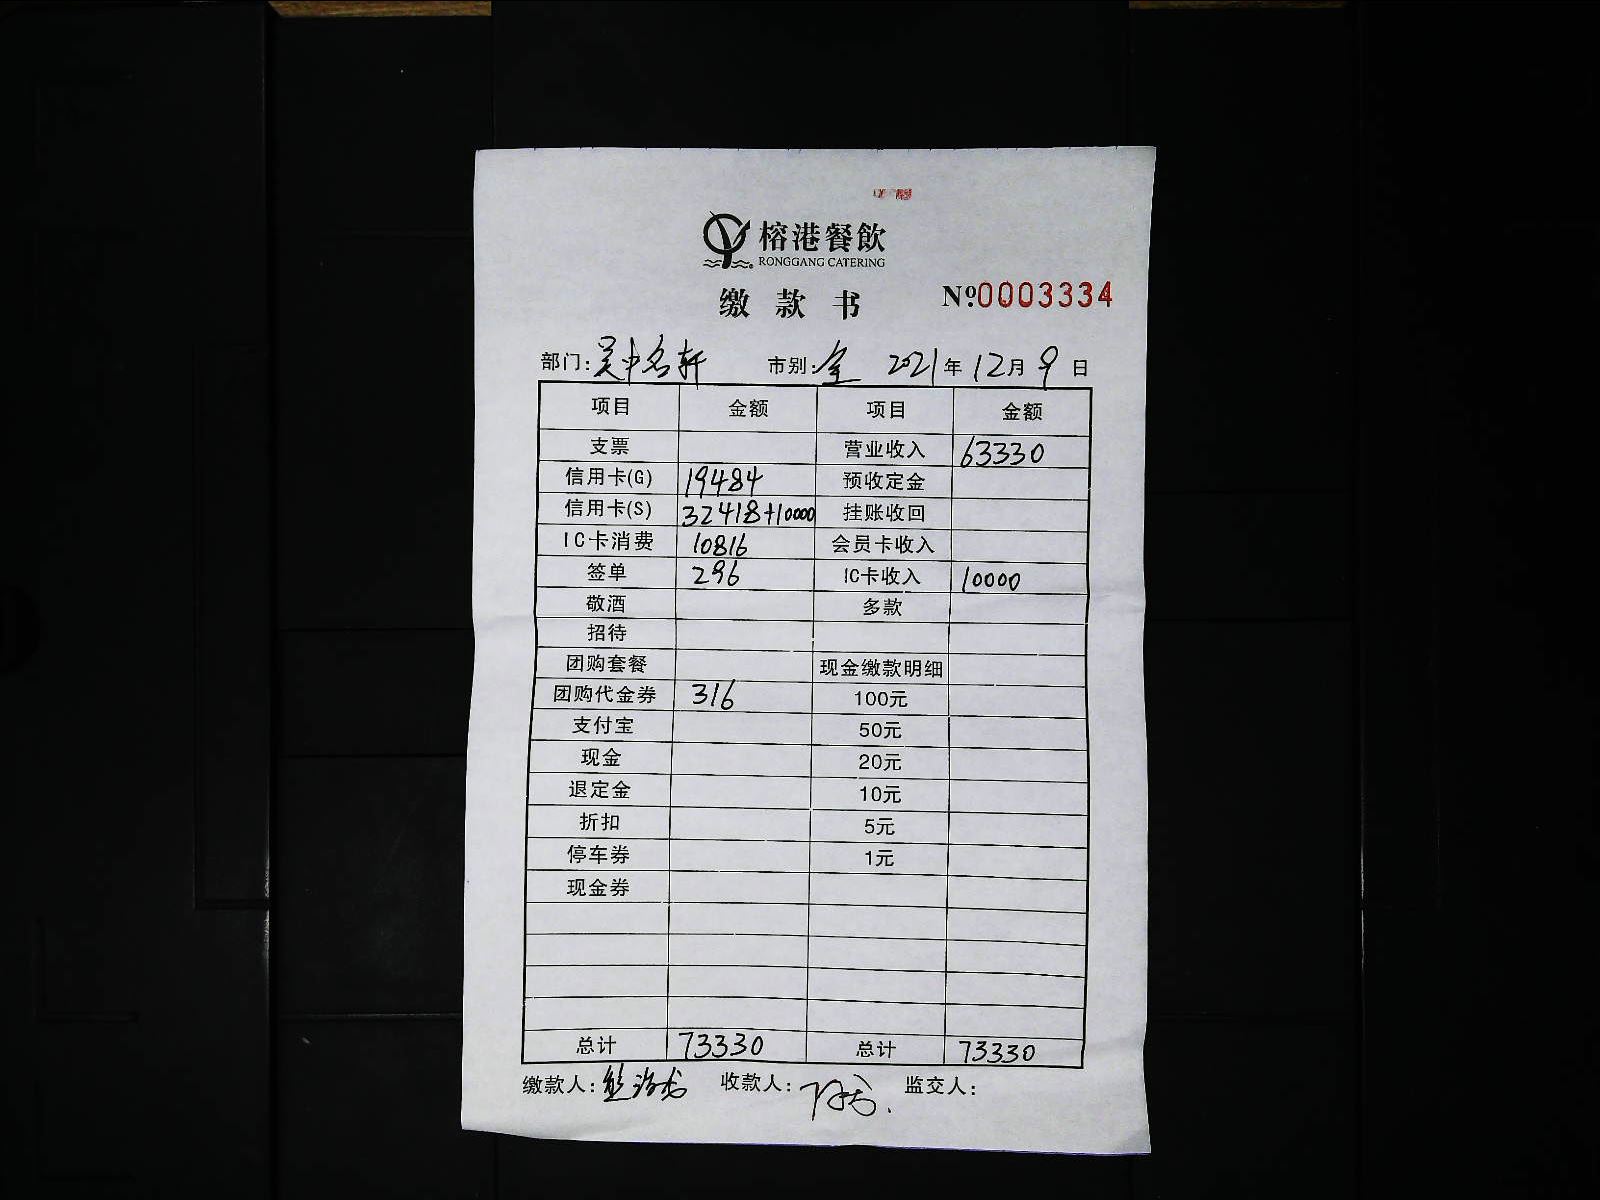 榕港餐飲
RONGGANG CATERING
缴款书 №0003334
部门：吴中名轩 市别：全 2021年12月9日
项目 金额 项目 金额
支票 营业收入 63330
信用卡(G) 19484 预收定金
信用卡(S) 32418+10000 挂账收回
IC卡消费 10816 会员卡收入
签单 296 IC卡收入 10000
敬酒 多款
招待
团购套餐 现金缴款明细
团购代金券 316 100元
支付宝 50元
现金 20元
退定金 10元
折扣 5元
停车券 1元
现金券
总计 73330 总计 73330
缴款人： 收款人： 监交人：